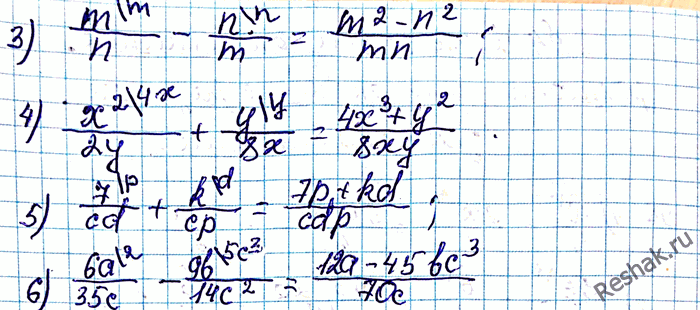 3) m\m/n - n\n/m = m²-n²/mn ;
4) x²\4x/2y + y\y/8x = 4x³+y²/8xy
5) 7\p/cd + k\d/cp = 7p+kd/cdp ;
6) 6a\2/35c - 9b\5c³/14c² = 12a-45bc³/70c
Reshak.ru